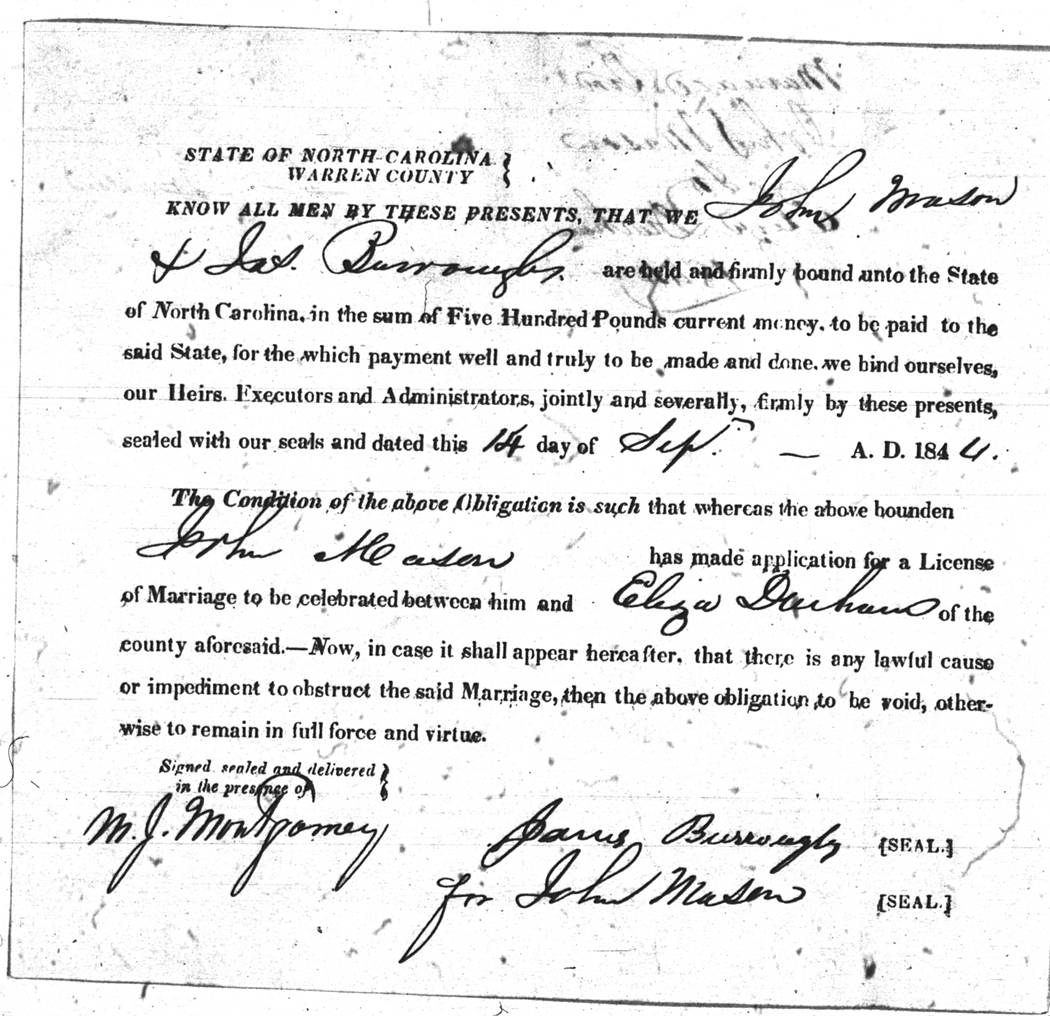 STATE OF NORTH-CAROLINA
WARREN COUNTY
KNOW ALL MEN BY THESE PRESENTS, THAT WE John Mason
& Jas. Burroughs are held and firmly bound unto the State
of North Carolina, in the sum of Five Hundred Pounds current money, to be paid to the
said State, for the which payment well and truly to be made and done, we bind ourselves,
our Heirs, Executors and Administrators, jointly and severally, firmly by these presents,
sealed with our seals and dated this 14 day of Sep. — A. D. 1844.
The Condition of the above Obligation is such that whereas the above bounden
John Mason has made application for a License
of Marriage to be celebrated between him and Eliza Durham of the
county aforesaid.—Now, in case it shall appear hereafter, that there is any lawful cause
or impediment to obstruct the said Marriage, then the above obligation to be void, other-
wise to remain in full force and virtue.
Signed, sealed and delivered
in the presence of
M. J. Montgomery
James Burroughs [SEAL.]
for John Mason [SEAL.]